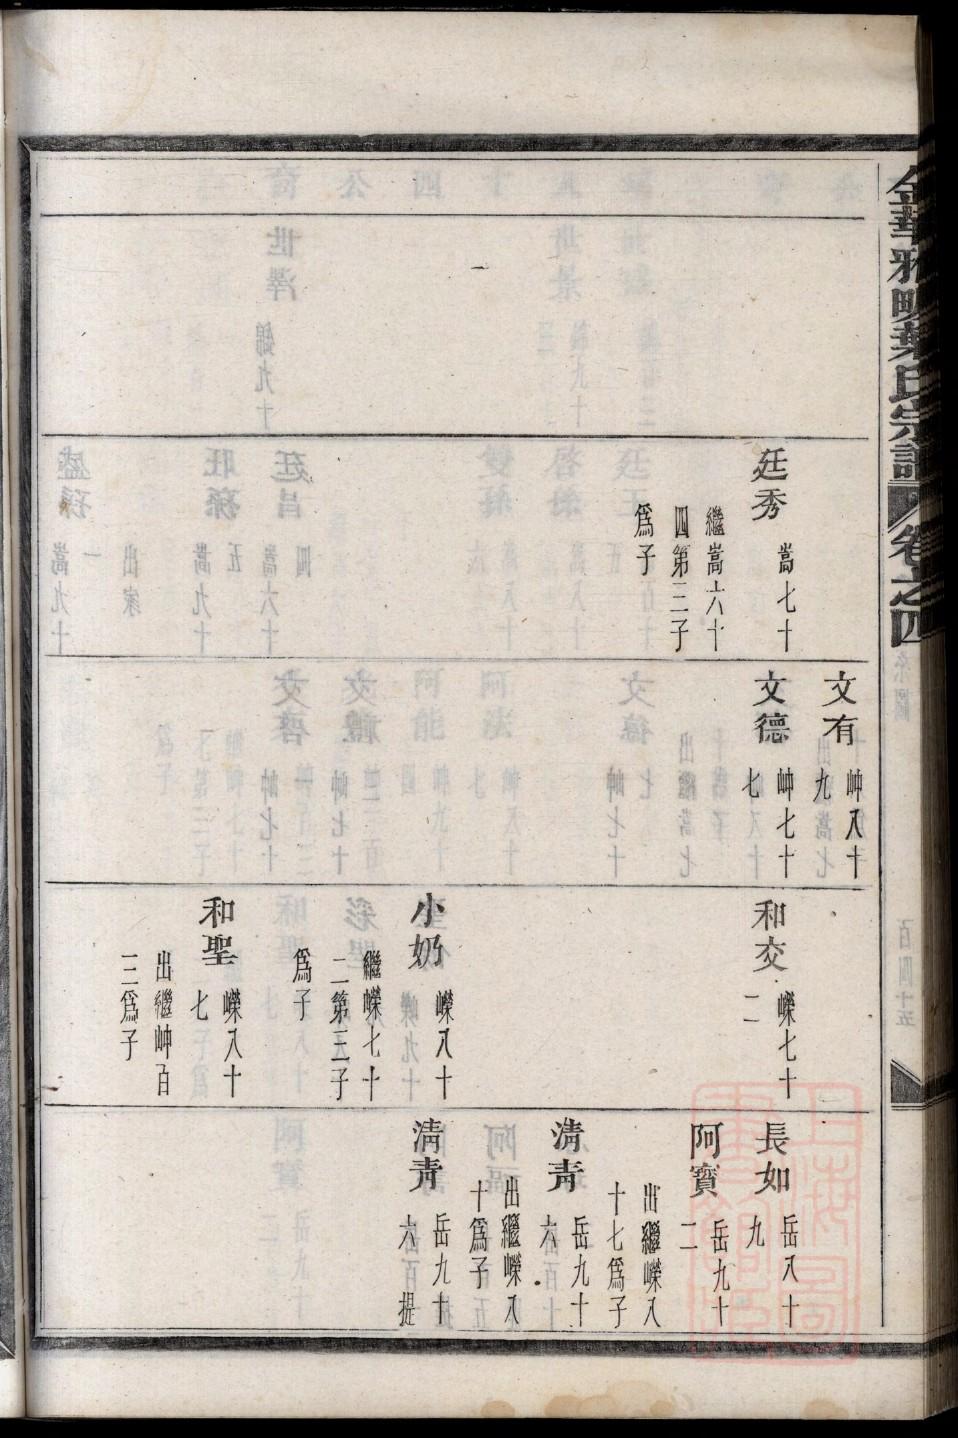 金華雅畈葉氏宗譜
卷之四
廷秀
嵩七十
繼嵩六十
四第三子
爲子
文有
岫八十
九
文德
岫七十
七
和交
嶸七十
二
小奶
嶸八十
繼嶸七十
二第三子
爲子
和聖
嶸八十
七
出繼岫百
三爲子
長如
岳八十
九
阿寳
岳九十
二
出繼嶸八
十七爲子
淸靑
岳九十
六
出繼嶸八
十爲子
淸靑
岳九十
六 提